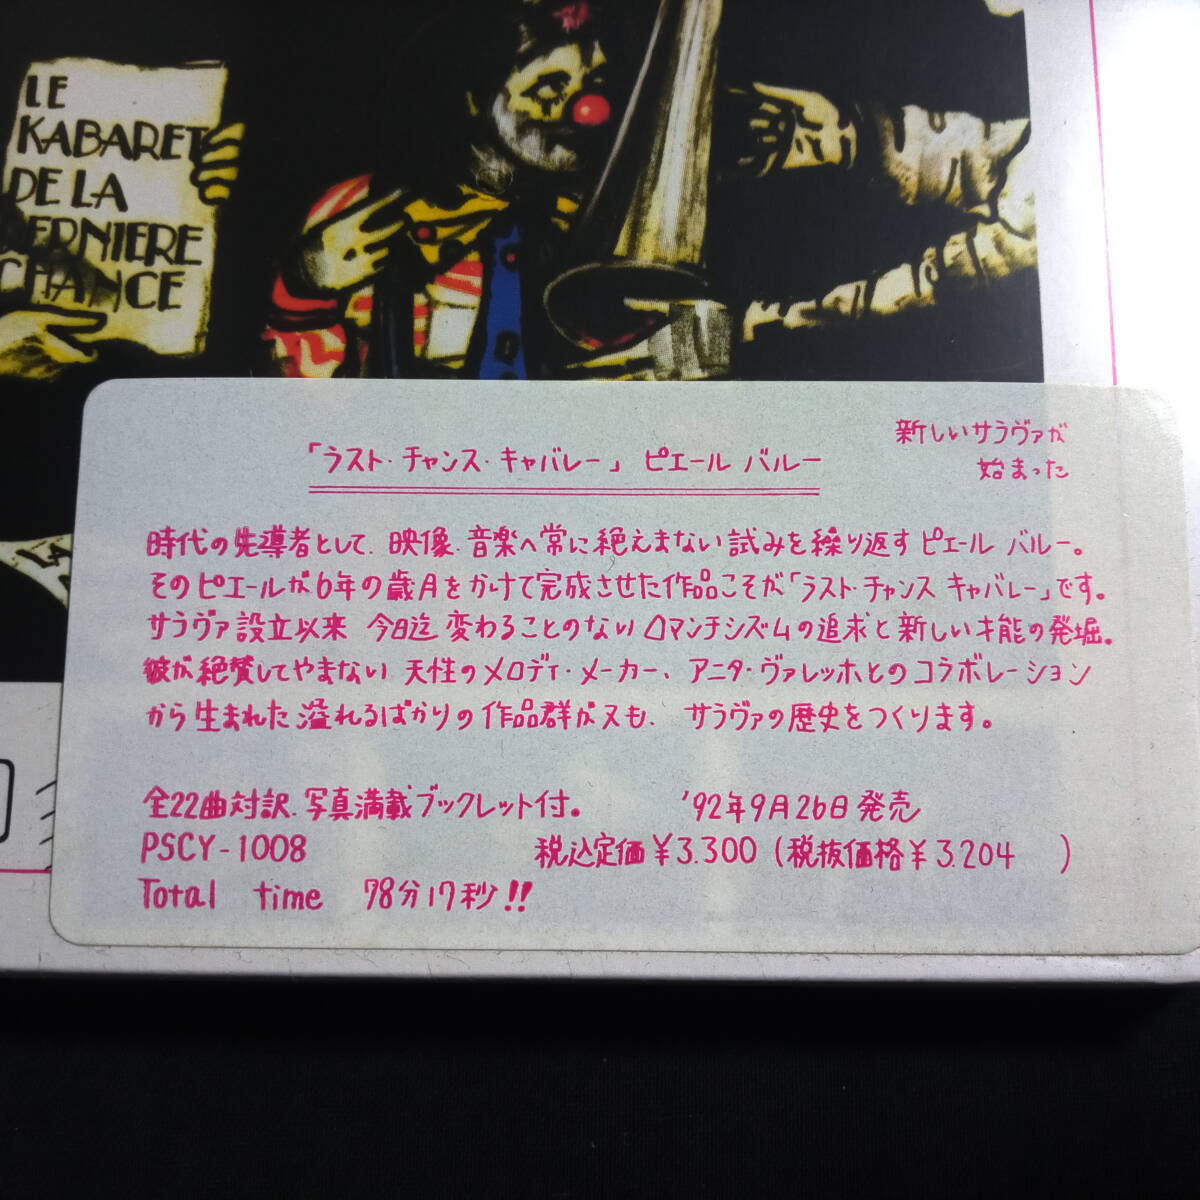 LE
KABARET
DE LA
DERNIERE
CHANCE
新しいサラヴァが
始まった
「ラスト・チャンス・キャバレー」 ピエール バルー
時代の先導者として、映像、音楽へ常に絶えまない試みを繰り返すピエール バルー。
そのピエールが6年の歳月をかけて完成させた作品こそが「ラスト・チャンス キャバレー」です。
サラヴァ設立以来 今日迄 変わることのないロマンチシズムの追求と新しい才能の発堀。
彼が絶賛してやまない 天性のメロディ・メーカー、アニタ・ヴァレッホとのコラボレーション
から生まれた溢れるばかりの作品群が又も、 サラヴァの歴史をつくります。
全22曲対訳、写真満載ブックレット付。 '92年9月26日発売
PSCY-1008 税込定価¥3.300 (税抜価格¥3.204 )
Total time 78分17秒!!